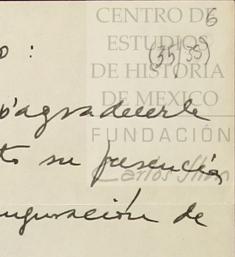 CENTRO DE
6
ESTUDIOS
o :
(35/35)
DE HISTORIA
DE MEXICO
p'agradecerle
FUNDACIÓN
to su presencia
Carlos Slim
auguración de